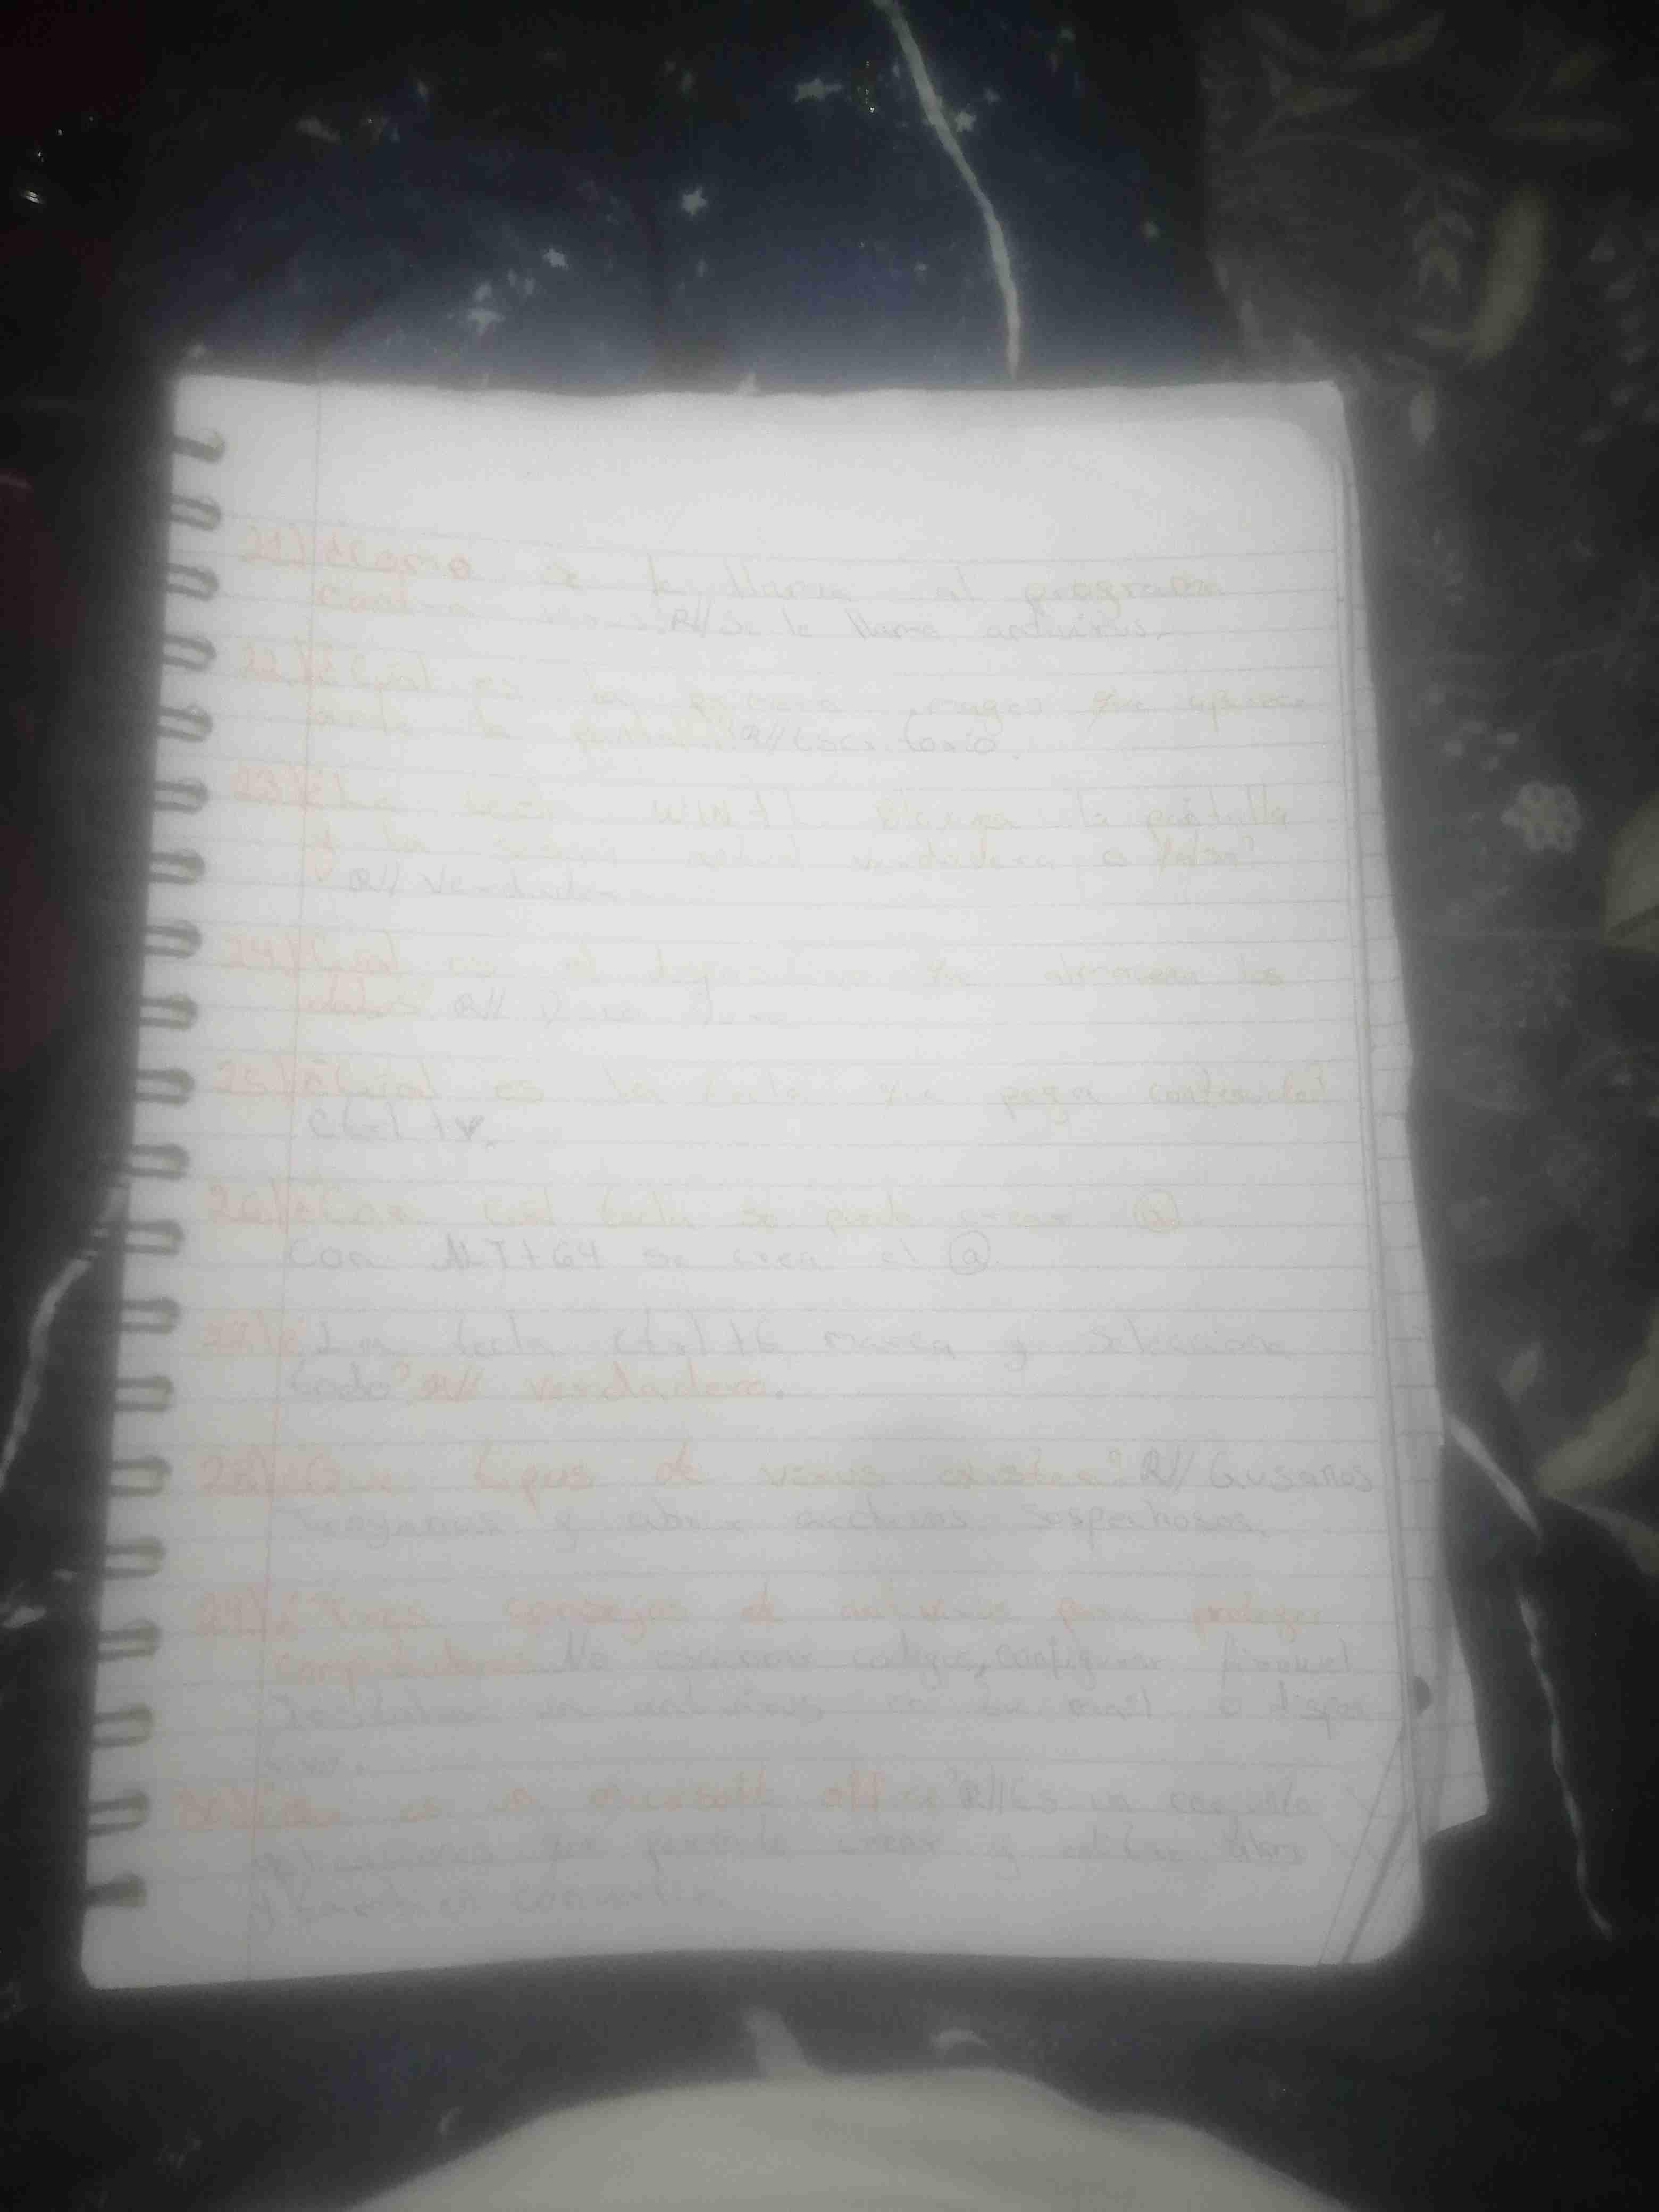 21) ¿Como se le llama al programa
contra virus? R// Se le llama antivirus.
22) ¿Cual es la primera imagen que aparece
en la R// Escritorio
23) ¿La tecla WIN + L Bloquea la pantalla
y la sesion actual verdadera o falsa?
R// Verdadero
24) Cual es el dispositivo que almacena los
datos R// Disco Duro
25) ¿Cual es la tecla que pega contenido?
Ctrl + V.
26) ¿Con cual tecla se puede crear @
Con ALT + 64 se crea el @
27) ¿La tecla Ctrl + E marca y selecciona
todo? R// verdadero.
28) ¿Que tipos de virus existen? R// Gusanos
Troyanos y abrir archivos sospechosos.
29) ¿Tres consejos de antivirus para proteger
computadoras No codigo, Configurar firewall
Instalar un antivirus en su o dispo
30) ¿Que es office? R// Es un conjunto
aplicaciones que permite crear y editar
y tambien convertir.